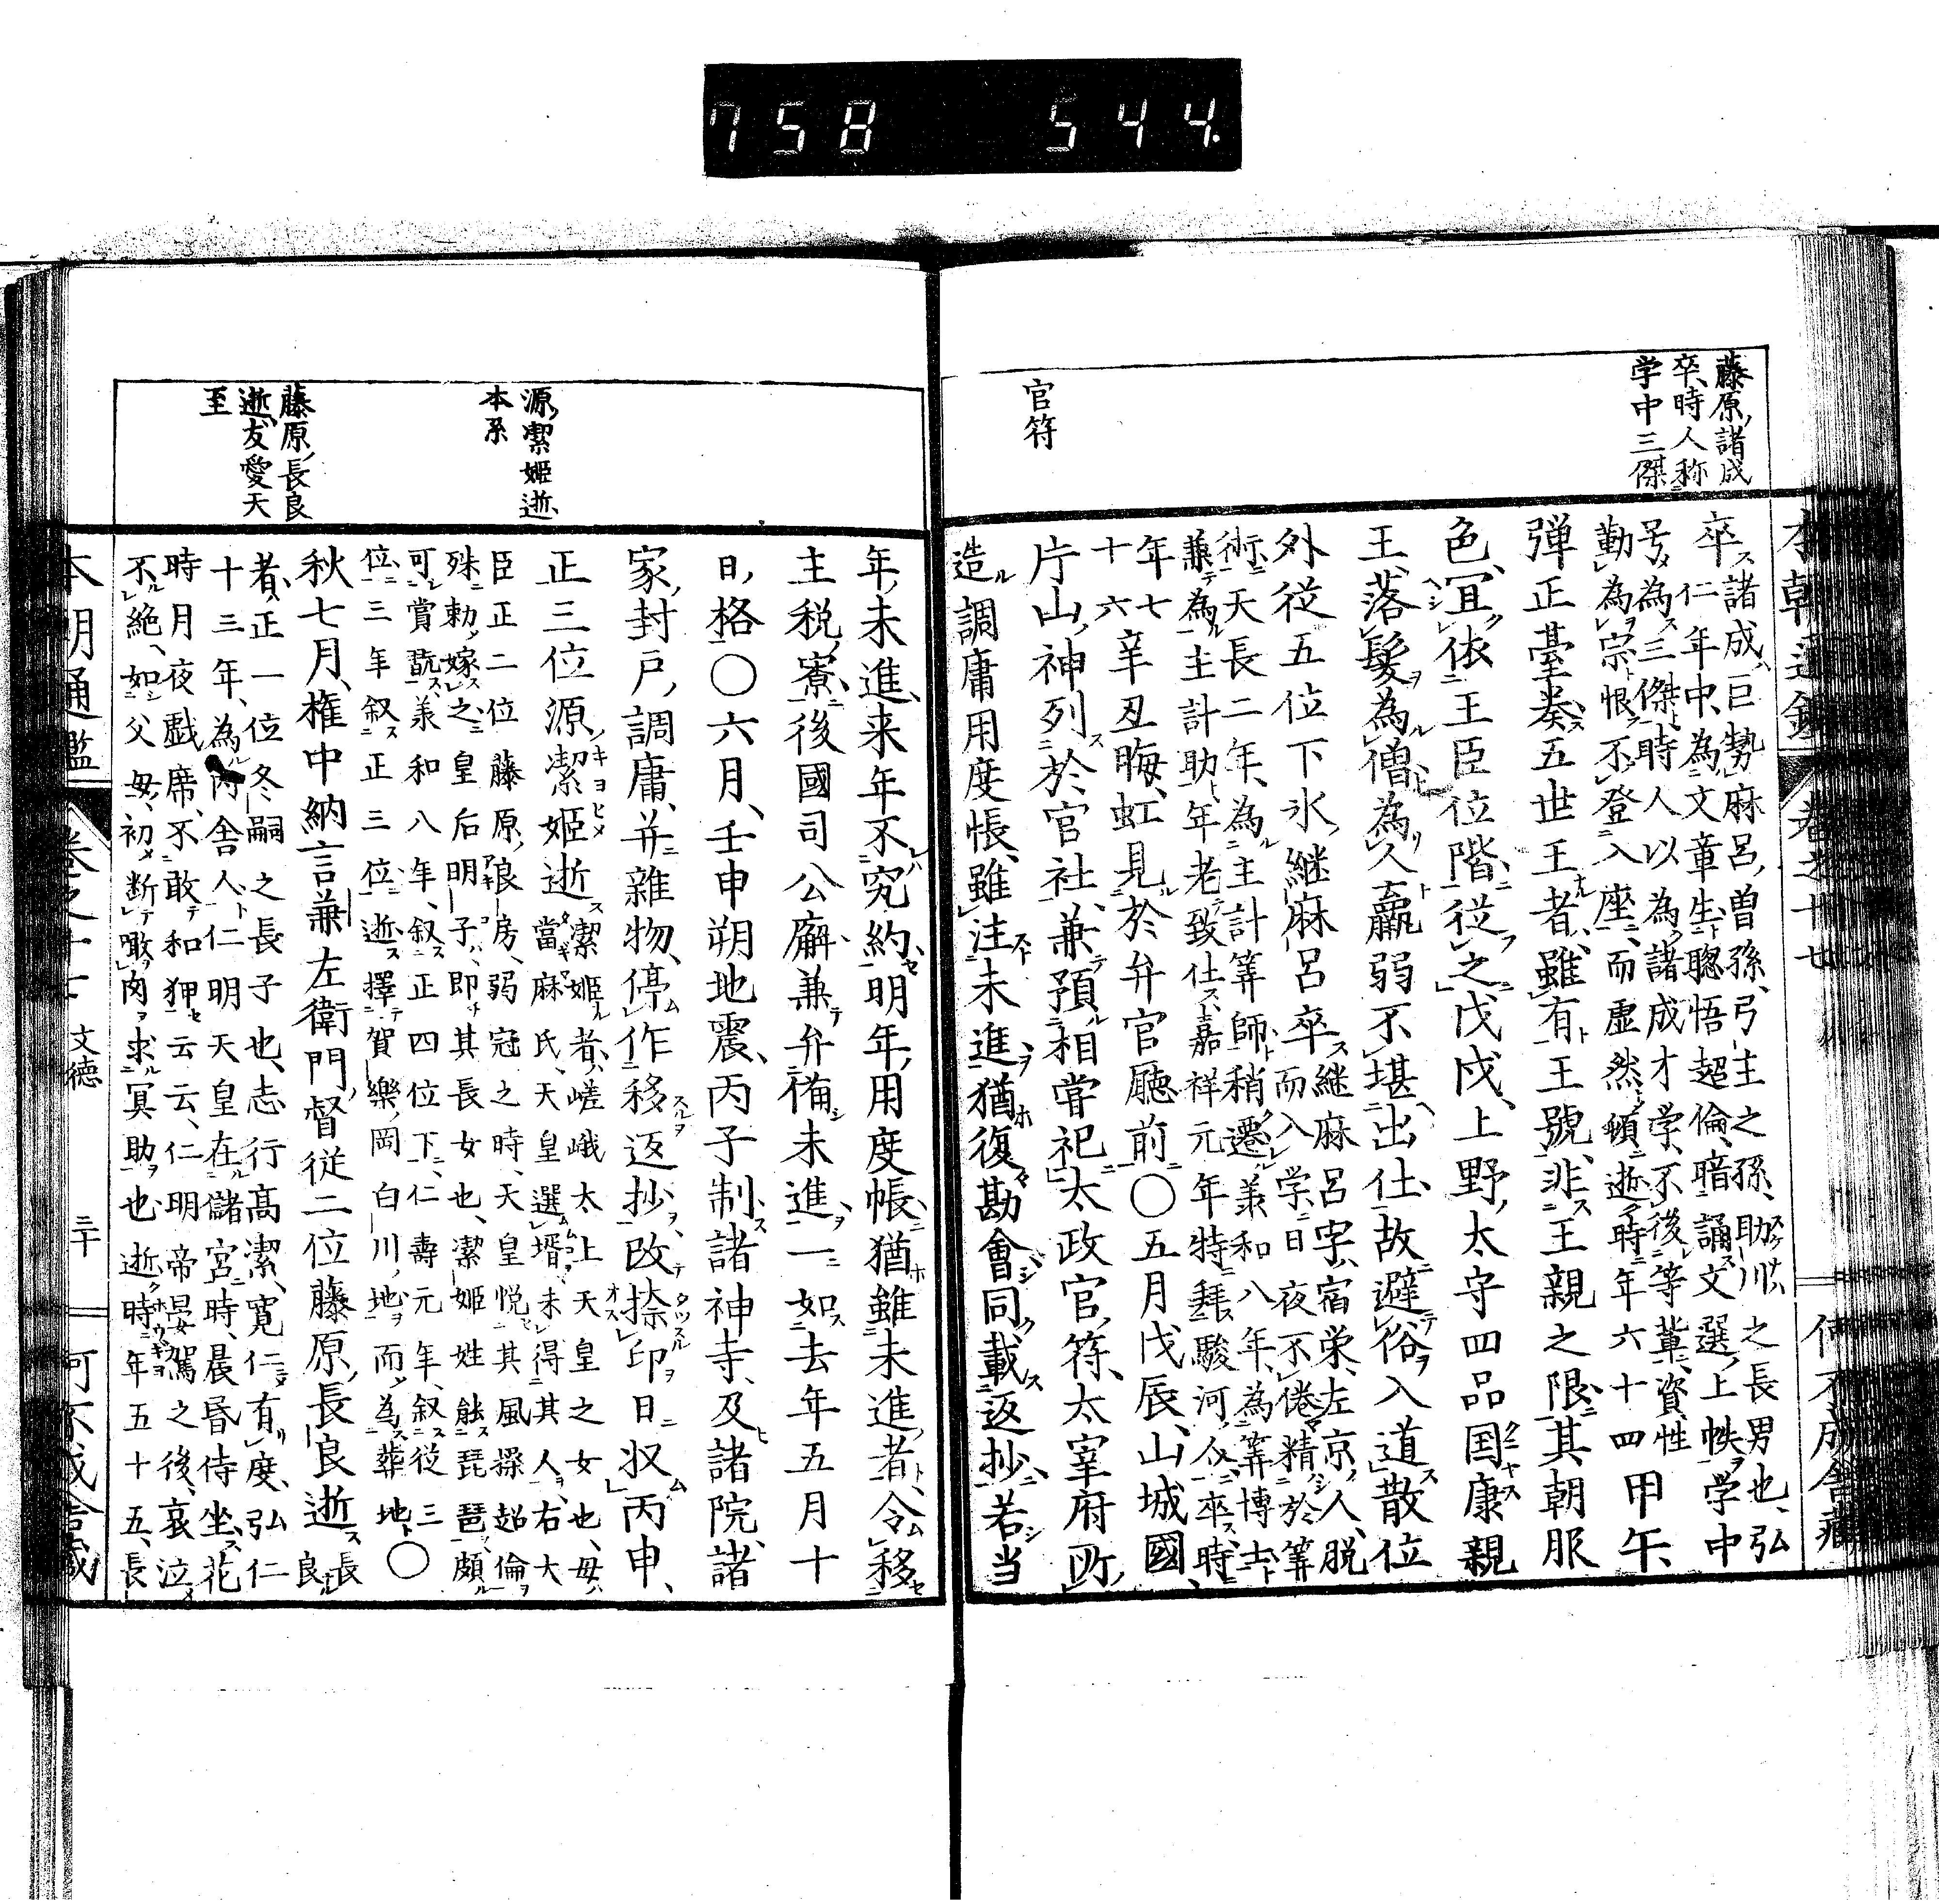 758 544
本朝通鑑 卷之十七
藤原諸成
卒時人称
学中三傑
官符
卒諸成巨勢麻呂曽孫弓主之孫助川之長男也弘
仁年中為文章生聰悟超倫暗誦文選上帙学中
号為三傑時人以為諸成才学不後等軰資性
勤為宗恨不登入座而虚然頓逝時年六十四甲午
弾正臺奏五世王者雖有王號非王親之限其朝服
色冝依王臣位階従之戊戌上野太守四品国康親
王落髮為僧為人羸弱不堪出仕故避俗入道散位
外従五位下氷継麻呂卒継麻呂字宿栄左京人脱
而入学日夜不倦精於筭
術天長二年為主計筭師稍遷兼和八年為筭博士
兼為主計助年老致仕嘉祥元年特拜駿河介卒時
年七
十六辛丑晦虹見於弁官廳前〇五月戊辰山城國
片山神列於官社兼預相嘗祀太政官符太宰府所
造調庸用度帳雖注未進猶復勘會同載返抄若当
年未進来年不究約明年用度帳猶雖未進者令移
主税寮後國司公廨兼弁備未進一如去年五月十
日格〇六月壬申朔地震丙子制諸神寺及諸院諸
家封戸調庸并雜物停作移返抄改捺印日収丙申
正三位源潔姫逝潔姫者嵯峨太上天皇之女也母
當麻氏天皇選壻未得其人右大
臣正二位藤原良房弱冠之時天皇悦其風操超倫
殊勅嫁之皇后明子即其長女也潔姫姓能琵琶頗
可賞翫兼和八年叙正四位下仁壽元年叙従三
位三年叙正三位逝擇賀樂岡白川地而為葬地〇
秋七月権中納言兼左衛門督従二位藤原長良逝長
良
者正一位冬嗣之長子也志行高潔寛仁有度弘仁
十三年為内舎人仁明天皇在儲宮時晨昏侍坐花
時月夜戯席不敢和狎云云仁明帝晏駕之後哀泣
不絶如父母初断噉肉求冥助也逝時年五十五長
源潔姫逝
本系
藤原長良
逝友愛天
至
本朝通鑑 卷之十七 文德 三十